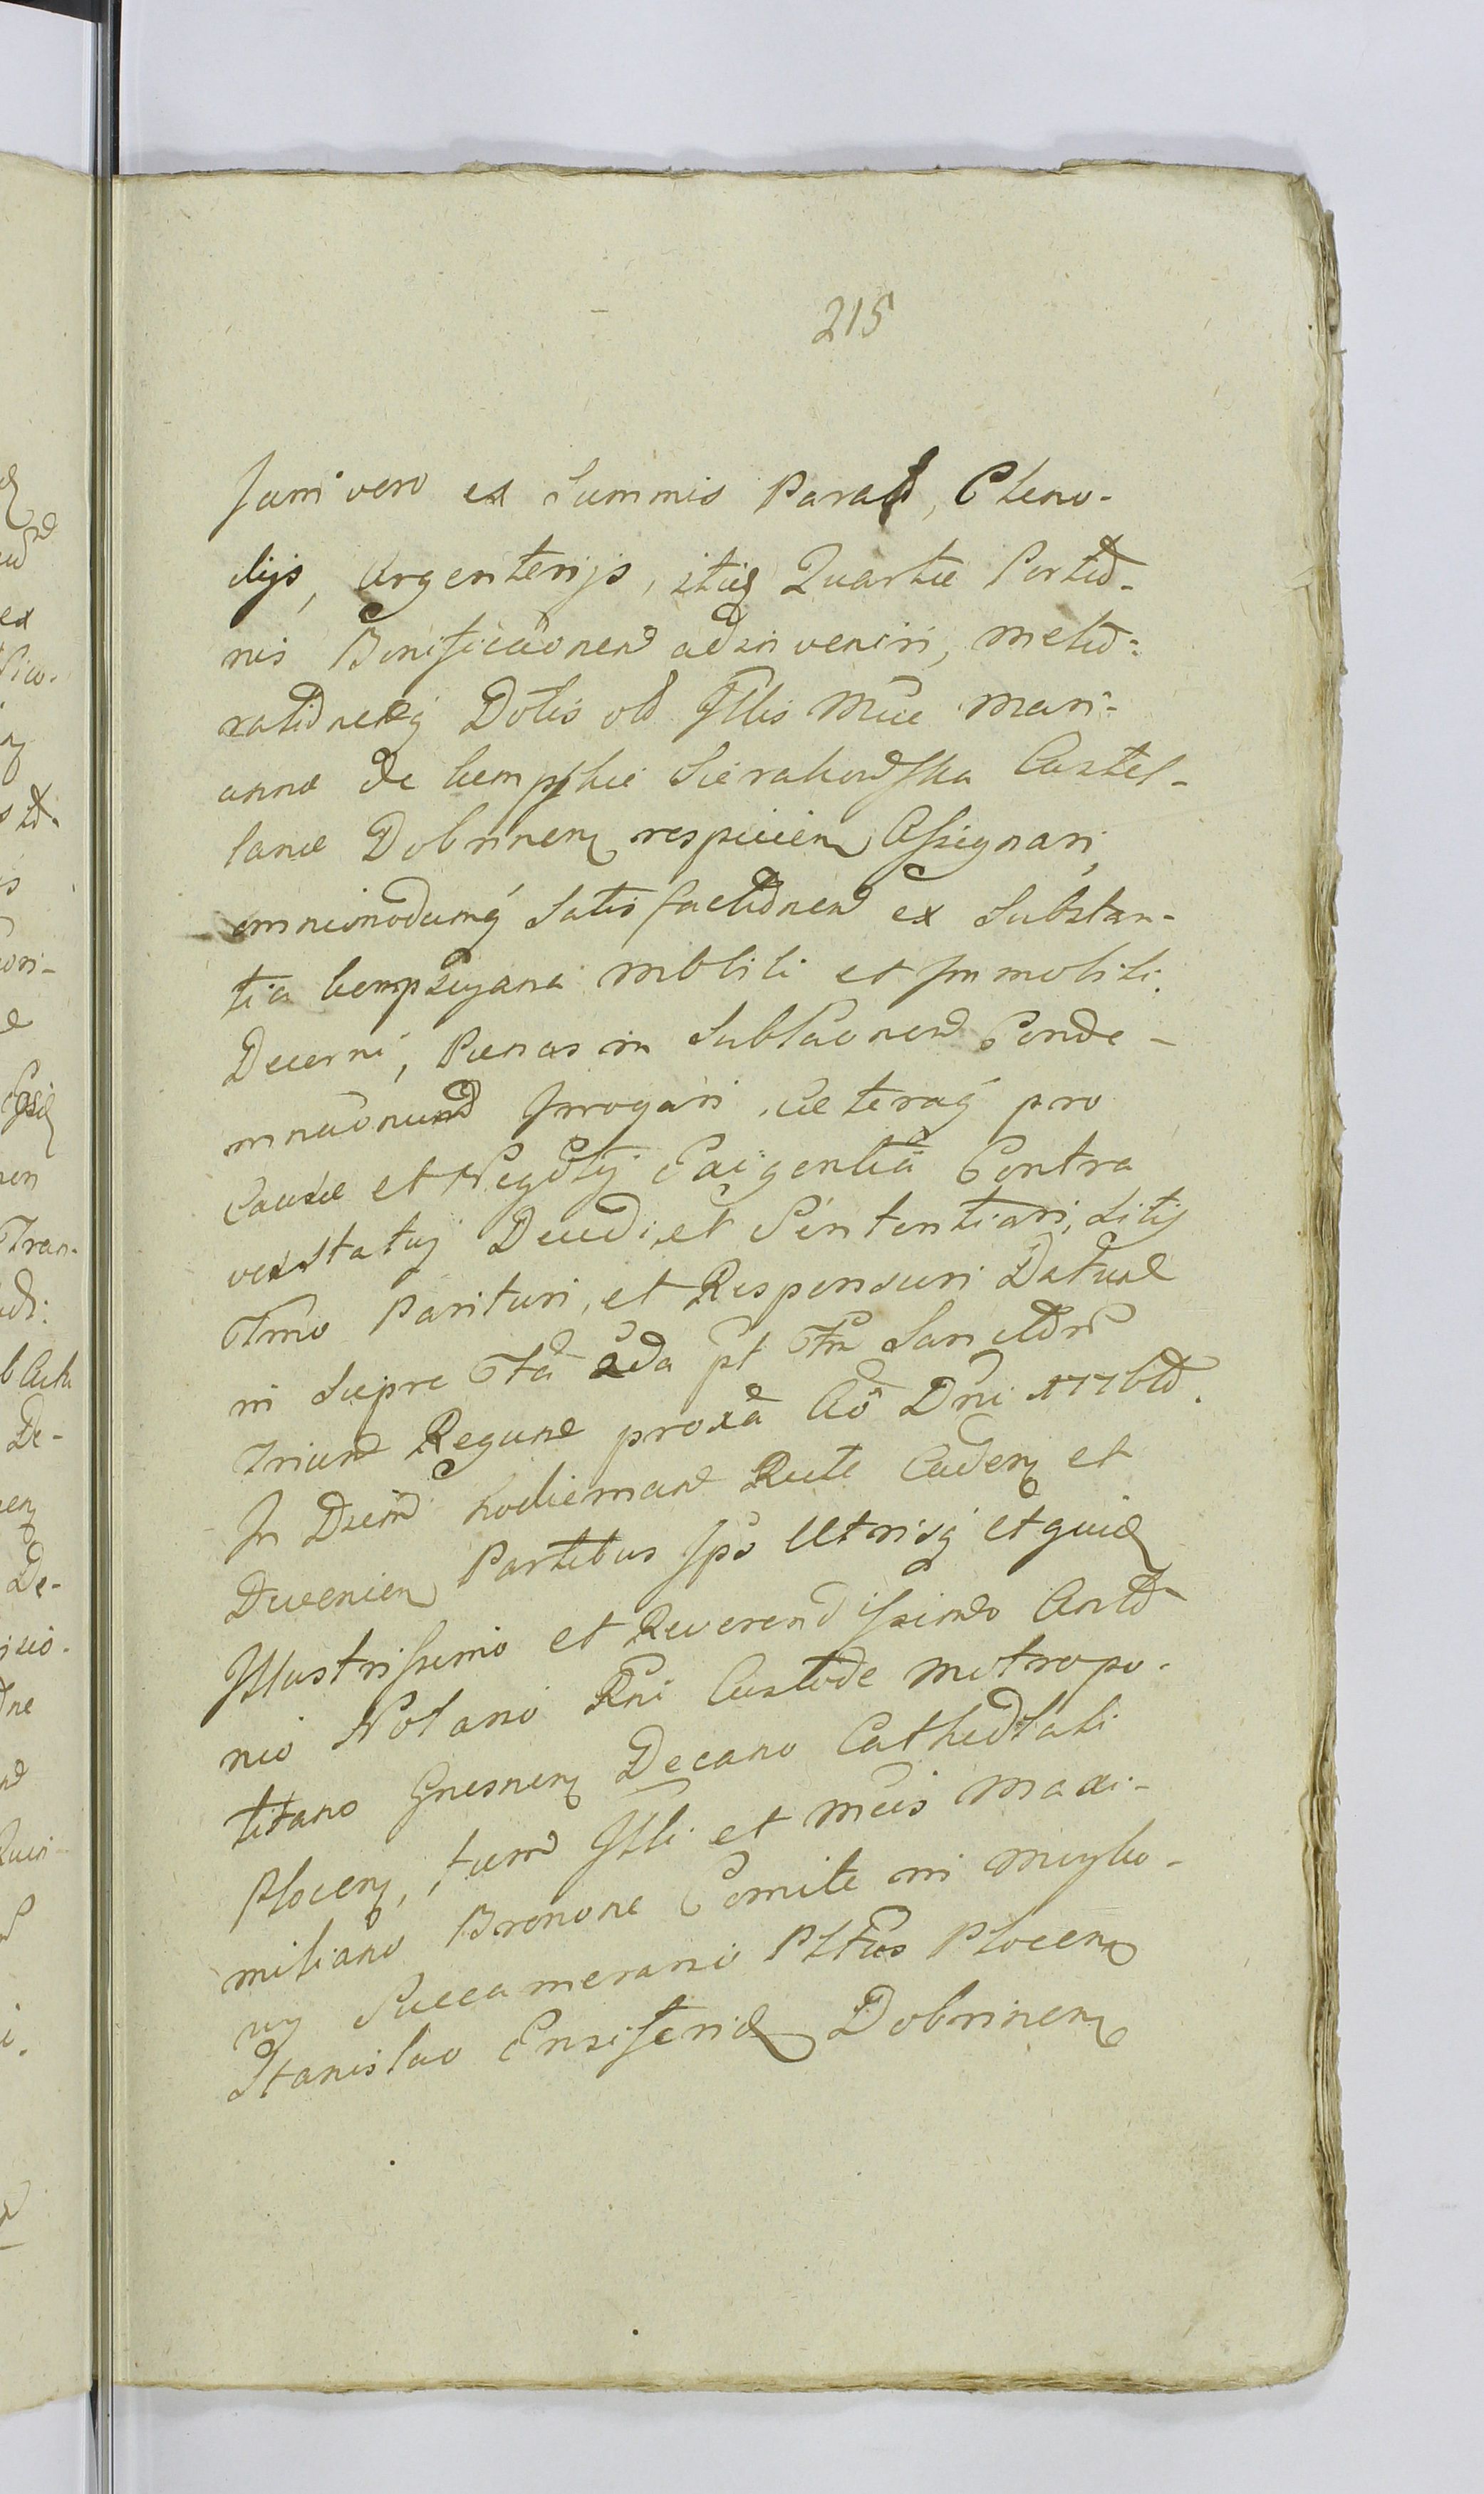 215
Jam vero ex Summis Parat, Cleno-
dijs, Argenterijs, itq Quartæ Portio-
nis Bonificãonem adinveniri, melio-
rationemq Dotis ob Illis Mcæ Mari-
annæ de Kempskie Sierakowska Castel-
lanæ Dobrinen respicien Assignari,
omnimodamq Satisfactionem ex Substan-
tia Kempsciyana mobili et Immobili
Decerni, Pænas in Sublãonem Conde-
mnãonum Irrogari, Cæteraq pro
Causæ et Negotij Exigentiã Contra
vos Statuj Decidi, et Sententiari, Litis
Tmo Parituri, et Responsuri Datum
in Supra Tã ada pt Fm Sanctor
Trium Regum proxã Aõ Dni 1776to.
In Diem hodiernam Rite Caden et
Dvenien Partibus Ipõ Utrisq et quid
Illustrissimo et Reverendissimo Anto-
nio Notario Rni Custode Metropo-
litano Gnesnen Decano Cathedrali
Plocen, tum Illi et Mcis Maxi-
miliano Bronone Comite in
Succamerario Pltus Plocen
Stanislao Ensifero Dobrinen